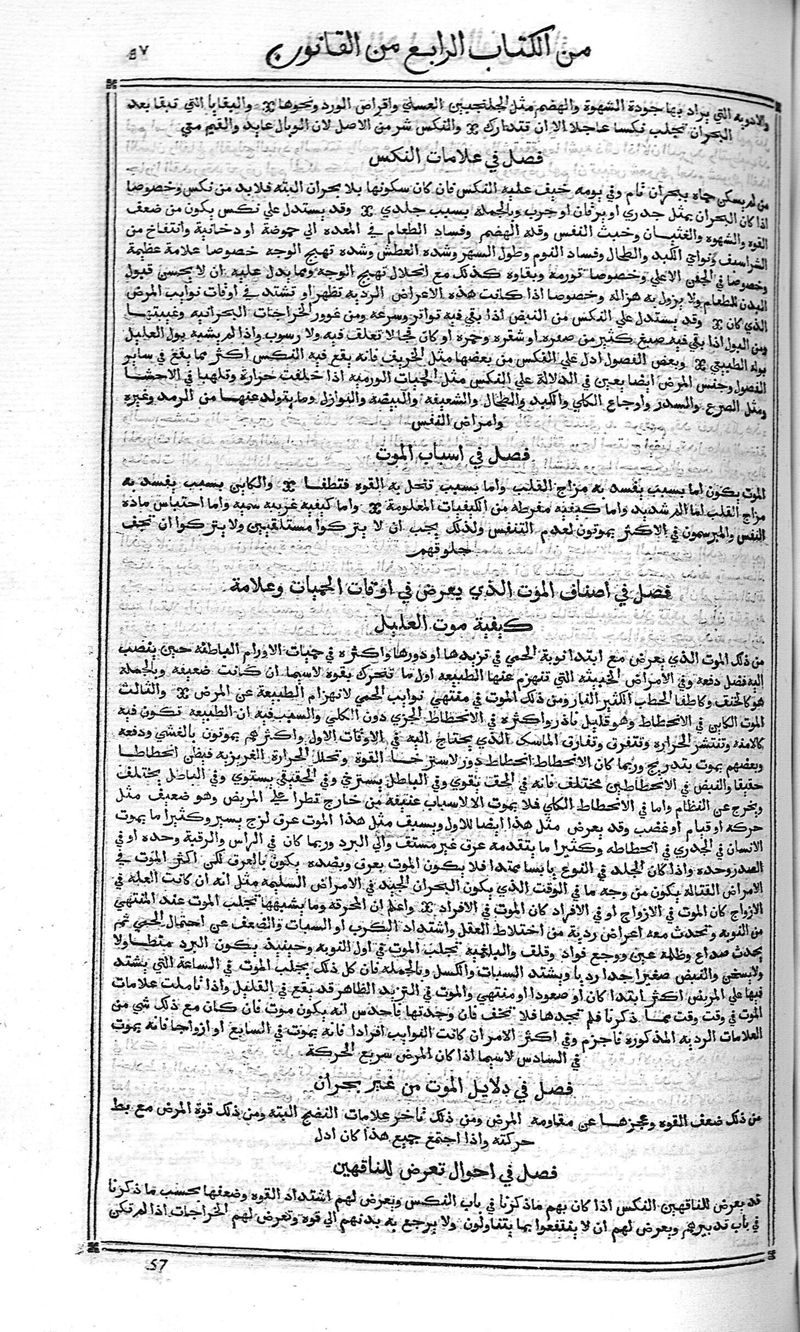 من الكتاب الرابع من القانون
٥٧
والادويه التي يراد بها جودة الشهوة والهضم مثل الجلنجبين العسلي واقراض الورد ونحوها والبقايا التي تبقا بعد
البحران تجلب نكسا عاجلا الا ان تتدارك والنكس شر من الاصل لان الوبال عايد والقيم متي
فصل في علامات النكس
من لم يسكن حماه ببحران تام وفي يومه خيف عليه النكس فان كان سكونها بلا بحران البته فلابد من نكس وخصوصا
اذا كان البحران بمثل جدري او يرقان او جرب وبالجمله بسبب جلدي وقد يستدل علي نكس يكون من ضعف
القوه والشهوه والغثيان وخبث النفس وقله الهضم وفساد الطعام في المعده الي حموضة او دخانية وانتفاخ من
الشراسيف ونواحي الكبد والطحال وفساد النوم وطول السهر وشده العطش وشده تهيج الوجه خصوصا علامة عظيمة
وخصوصا في الجفن الاعلي وخصوصا تورمه وبقاوه كذلك مع انحلال تهيج الوجه ومما يدل عليه ان لا يحسن قبول
البدن للطعام ولا يزول به هزاله وخصوصا اذا كانت هذه الاعراض الرديه تظهر او تشتد في اوقات نوايب المرض
الذي كان وقد يستدل علي النكس من النبض اذا بقي فيه تواتر وسرعه ومن غوور الخراجات البحرانيه وغيبتها
ومن البول اذا بقي فيه صبغ كثير من صفره او شقره وحمره او كان فجا لا تعلف فيه ولا رسوب واذا لم يشبه بول العليل
بوله الطبيعي وبعض الفصول ادل علي النكس من بعضها مثل الخريف فانه يقع فيه النكس اكثر مما يقع في ساير
الفصول وجنس المرض ايضا يعين في الدلالة علي النكس مثل الحميات الورميه اذا خلفت حرارة وتلهبا في الاحشا
ومثل الصرع والسدر واوجاع الكلي والكبد والطحال والشقيقه والبيضه والنوازل وما يتولد عنها من الرمد وغيره
وامراض النفس
فصل في اسباب الموت
الموت يكون اما بسبب يفسد به مزاج القلب واما بسبب تنحل به القوه فتطفا والكاين بسبب يفسد به
مزاج القلب اما الم شديد واما كيفيه مفرطه من الكيفيات المعلومة واما كيفيه غريبه سميه واما احتباس ماده
النفس والمبرسمون في الاكثر يموتون لعدم التنفس ولذلك يجب ان لا يتركوا مستلقيين ولا يتركوا ان تجف
حلوقهم
فصل في اصناف الموت الذي يعرض في اوقات الحميات وعلامة
كيفية موت العليل
من ذلك الموت الذي يعرض مع ابتدا نوبة الحمي في تزيدها او دورها واكثره في حميات الاورام الباطنه حين ينصب
اليه فضل دفعه وفي الامراض الخبيثه التي تنهزم عنها الطبيعه اول ما تتحرك بقوه لاسيما ان كانت ضعيفه وبالجمله
هو كالخنق وكاطفا الحطب الكثير النار ومن ذلك الموت في منتهي نوايب الحمي لانهزام الطبيعة عن المرض والثالث
الموت الكاين في الانحطاط وهو قليل نادر واكثره في الانحطاط الجزي دون الكلي والسبب فيه ان الطبيعه تكون فيه
كالامنه وتنتشر الحراره وتتفرق وتفارق الماسك الذي يحتاج اليه في الاوقات الاول واكثرهم يموتون بالغشي ودفعه
وبعضهم يموت بتدريج وربما كان الانحطاط انحطاط دور لاسترخا القوه وتحلل الحرارة الغريزيه فيظن انحطاطا
حقيقا والنبض في الانحطاطين مختلف فانه في الحق يقوي وفي الباطل يسترخي وفي الحقيقي يستوي وفي الباطل يختلف
ويخرج عن النظام واما في الانحطاط الكلي فلا يموت الا لاسباب عنيفه من خارج تطرا علي المريض وهو ضعيف مثل
حركه او قيام او غضب وقد يعرض مثل هذا ايضا للاول ويسبق مثل هذا الموت عرق لزج يسير وكثيرا ما يموت
الانسان في الجدري في انحطاطه وكثيرا ما يتقدمه عرق غير مستف والي البرد وربما كان في الراس والرقبة وحده او في
الصدر وحده واذا كان الجلد في النوع يابسا ممتدا فلا يكون الموت بعرق وبضده يكون بالعرق لكن اكثر الموت في
الامراض القتالة يكون من وجه ما في الوقت الذي يكون البحران الجيد في الامراض السليمه مثل انه ان كانت العله في
الازواج كان الموت في الازواج او في الافراد كان الموت في الافراد واعلم ان المحرقة وما يشبهها تجلب الموت عند المنتهي
من النوبه وتحدث معه اعراض ردية من اختلاط العقل واشتداد الكرب او السبات والضعف عن احتمال الحمي ثم
يحدث صداع وظلمه عين ووجع فواد وقلف والبلغمية تجلب الموت في اول النوبه وحينيذ يكون البرد متطاولا
ولا يسخن والنبض صغيرا جدا رديا ويشتد السبات والكسل وبالجمله فان كل ذلك يجلب الموت في الساعة التي يشتد
فيها علي المريض اكثر ابتدا كان او صعودا او منتهي والموت في التزيد الظاهر قد يقع في القليل واذا تاملت علامات
الموت في وقت وقت مما ذكرنا فلم تجدها فلا تخف فان وجدتها فاحدس انه يكون موت فان كان مع ذلك شي من
العلامات الرديه المذكوره فاجزم وفي اكثر الامر ان كانت النوايب افرادا فانه يموت في السابع او ازواجا فانه يموت
في السادس لاسيما اذا كان المرض سريع الحركة
فصل في دلايل الموت من غير بحران
من ذلك ضعف القوه وعجزها عن مقاومه المرض ومن ذلك تاخر علامات النضج البته ومن ذلك قوة المرض مع بط
حركته واذا اجتمع جميع هذا كان ادل
فصل في احوال تعرض للناقهين
قد يعرض للناقهين النكس اذا كان بهم ما ذكرنا في باب النكس ويعرض لهم اشتداد القوه وضعفها بحسب ما ذكرنا
في باب تدبيرهم ويعرض لهم ان لا ينتفعوا بما يتناولون ولا يرجع به بدنهم الي قوه وتعرض لهم الخراجات اذا لم تكن
57